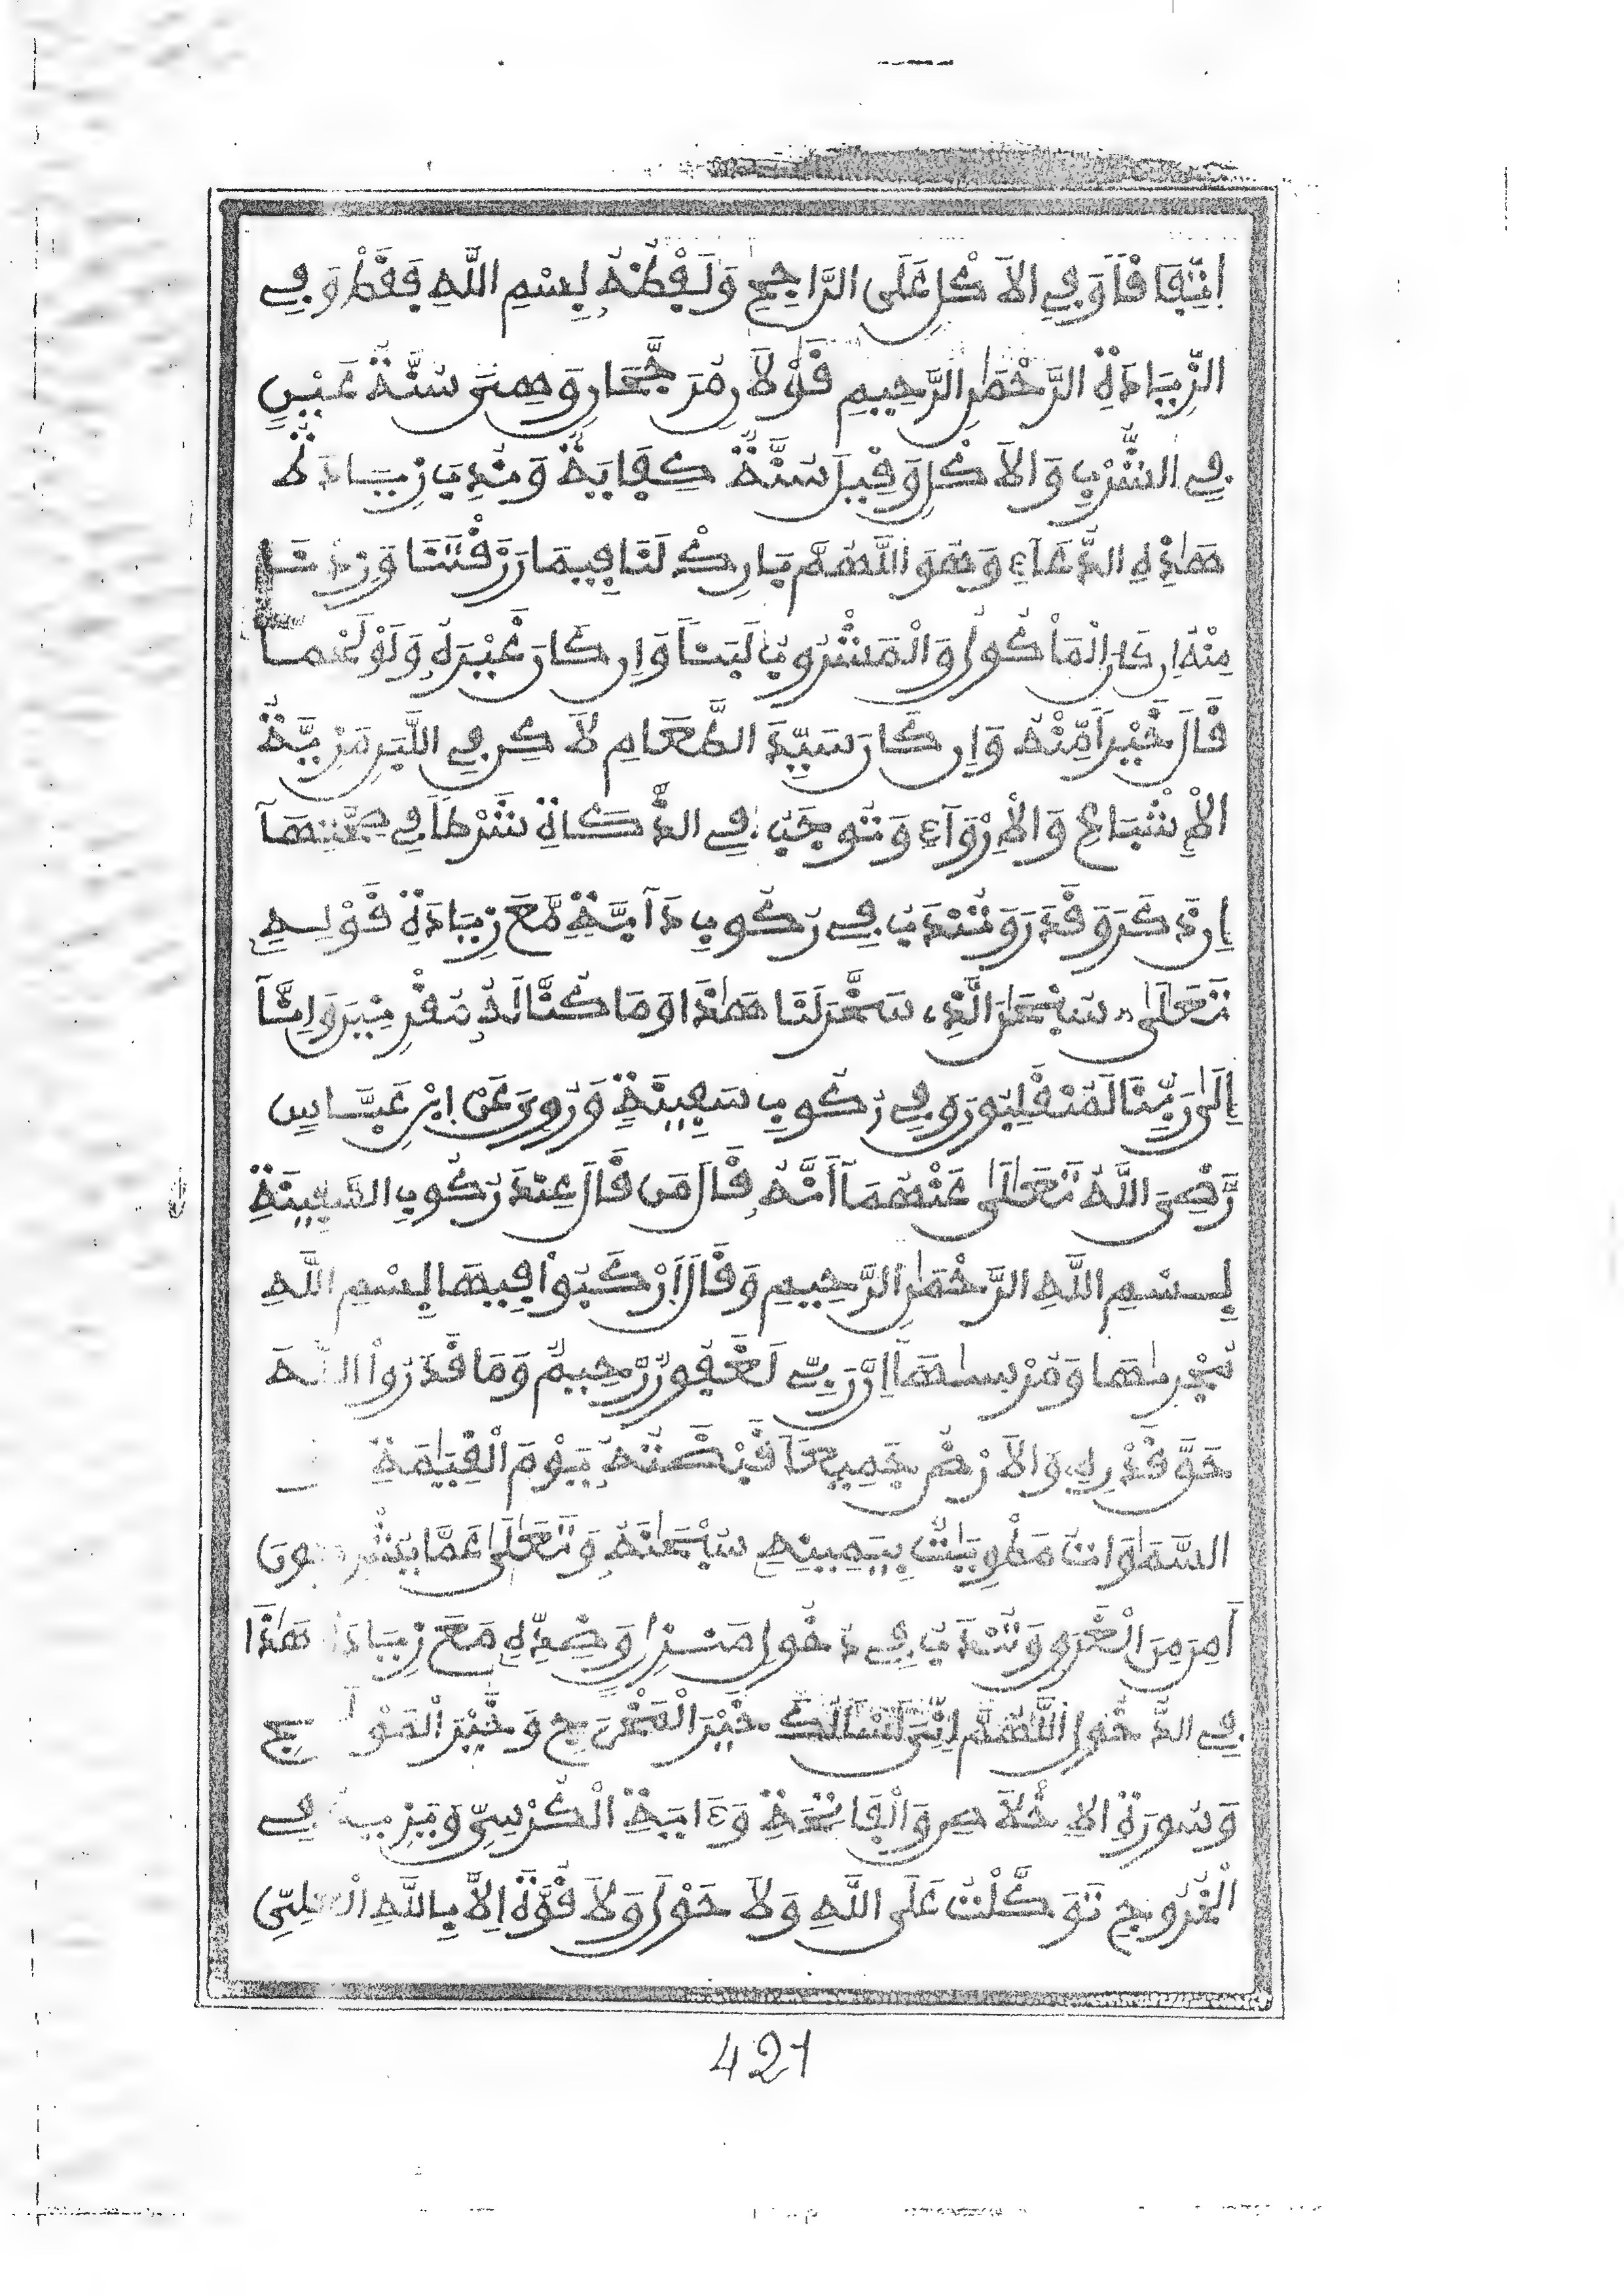 اِتِّفَاقًا وَفِي الاَكْلِ عَلَى الرَّاجِحِ وَلَفْظُهُ بِسْمِ اللَّهِ فَقَطْ وَفِي
الزِّيَادَةِ الرَّحْمَٰنِ الرَّحِيمِ قَوْلاَنِ مُرَجَّحَانِ وَهِيَ سُنَّةُ عَيْنٍ
فِي الشُّرْبِ وَالاَكْلِ وَقِيلَ سُنَّةُ كِفَايَةٍ وَنُدِبَ زِيَادَةُ
هَٰذِهِ الدُّعَآءِ وَهُوَ اللَّهُمَّ بَارِكْ لَنَا فِيمَا رَزَقْتَنَا وَزِدْنَا
مِنْهُ اِن كَانَ الْمَأْكُولُ وَالْمَشْرُوبُ لَبَنًا وَاِن كَانَ غَيْرَهُ وَلَوْ لَحْمًا
قَالَ خَيْرًا مِّنْهُ وَاِن كَانَ سَيِّدَ الطَّعَامِ لاَكِن فِي اللَّبَنِ مَزِيَّةُ
الاِشْبَاعِ وَالاِرْوَآءِ وَتُوجَبُ فِي الذَّكَاةِ شَرْطًا فِي صِحَّتِهَآ
اِن ذَكَرَ وَقَدَرَ وَتُنْدَبُ فِي رُكُوبِ دَآبَّةٍ مَّعَ زِيَادَةِ قَوْلِهِ
تَعَالَىٰ سُبْحَٰنَ الَّذِي سَخَّرَ لَنَا هَٰذَا وَمَا كُنَّا لَهُ مُقْرِنِينَ وَإِنَّآ
اِلَىٰ رَبِّنَا لَمُنْقَلِبُونَ وَفِي رُكُوبِ سَفِينَةٍ وَرُوِيَ عَنْ ابْنِ عَبَّاسٍ
رَّضِيَ اللَّهُ تَعَالَىٰ عَنْهُمَآ أَنَّهُ قَالَ مَن قَالَ عِنْدَ رُكُوبِ السَّفِينَةِ
بِسْمِ اللَّهِ الرَّحْمَٰنِ الرَّحِيمِ وَقَالَ اَرْكَبُواْ فِيهَا بِسْمِ اللَّهِ
مُجْرٰىهَا وَمُرْسٰىهَآ اِنَّ رَبِّي لَغَفُورٌ رَّحِيمٌ وَمَا قَدَرُواْ اللَّهَ
حَقَّ قَدْرِهِ وَالاَرْضُ جَمِيعًا قَبْضَتُهُ يَوْمَ الْقِيَٰمَةِ
السَّمَٰوَاتُ مَطْوِيَّٰتٌ بِيَمِينِهِ سُبْحَٰنَهُ وَتَعَالَىٰ عَمَّا يُشْرِكُونَ
أَمِنَ مِنَ الْغَرَقِ وَتُنْدَبُ فِي دُخُولِ مَنْزِلٍ وَضِدِّهِ مَعَ زِيَادَةِ هَٰذَا
فِي الدُّخُولِ اللَّهُمَّ إِنِّي أَسْأَلُكَ خَيْرَ الْمَخْرَجِ وَخَيْرَ الْمَوْلَجِ
وَسُورَةِ الاِخْلاَصِ وَالْفَاتِحَةِ وَءَايَةِ الْكُرْسِيِّ وَيَزِيدُ فِي
الْخُرُوجِ تَوَكَّلْتُ عَلَى اللَّهِ وَلاَ حَوْلَ وَلاَ قُوَّةَ اِلاَّ بِاللَّهِ الْعَلِيِّ
421